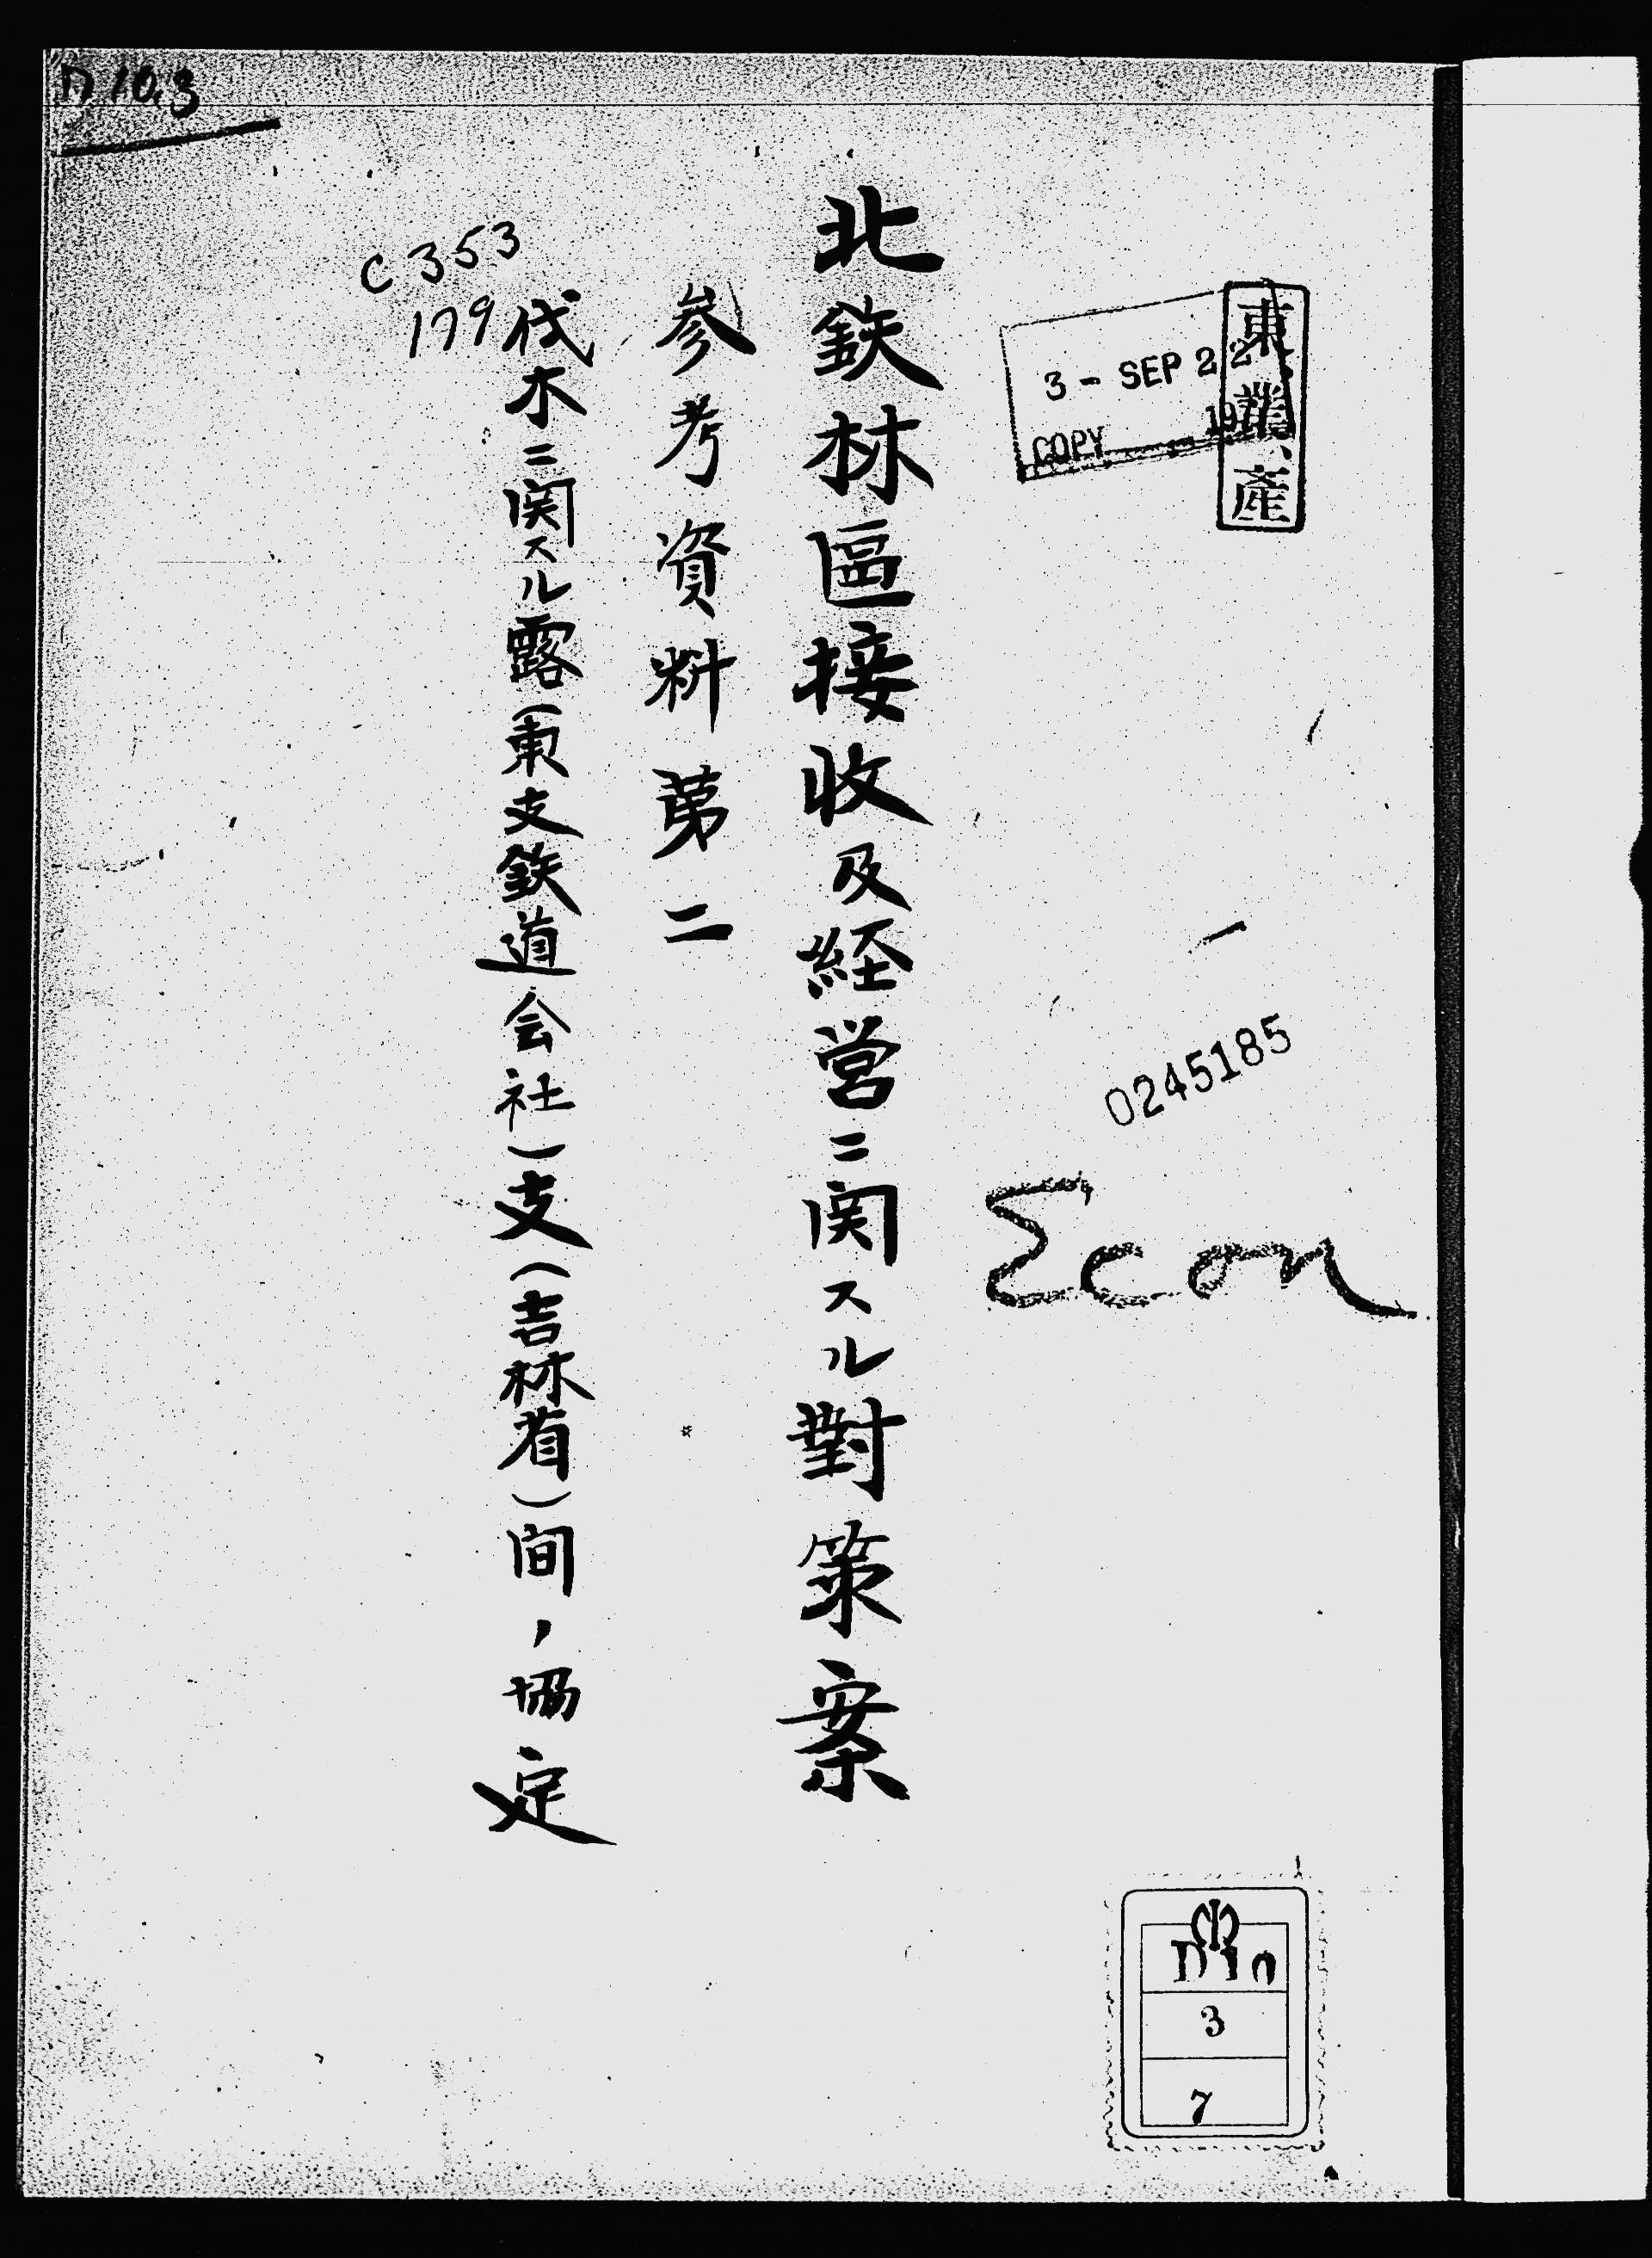 D10.3
東業産
3 - SEP 22
COPY
0245185
Econ
北鉄林區接收及経営ニ関スル對策案
參考資料第二
伐木ニ関スル露(東支鉄道会社)支(吉林省)间ノ協定
C 353
179
D10
3
7